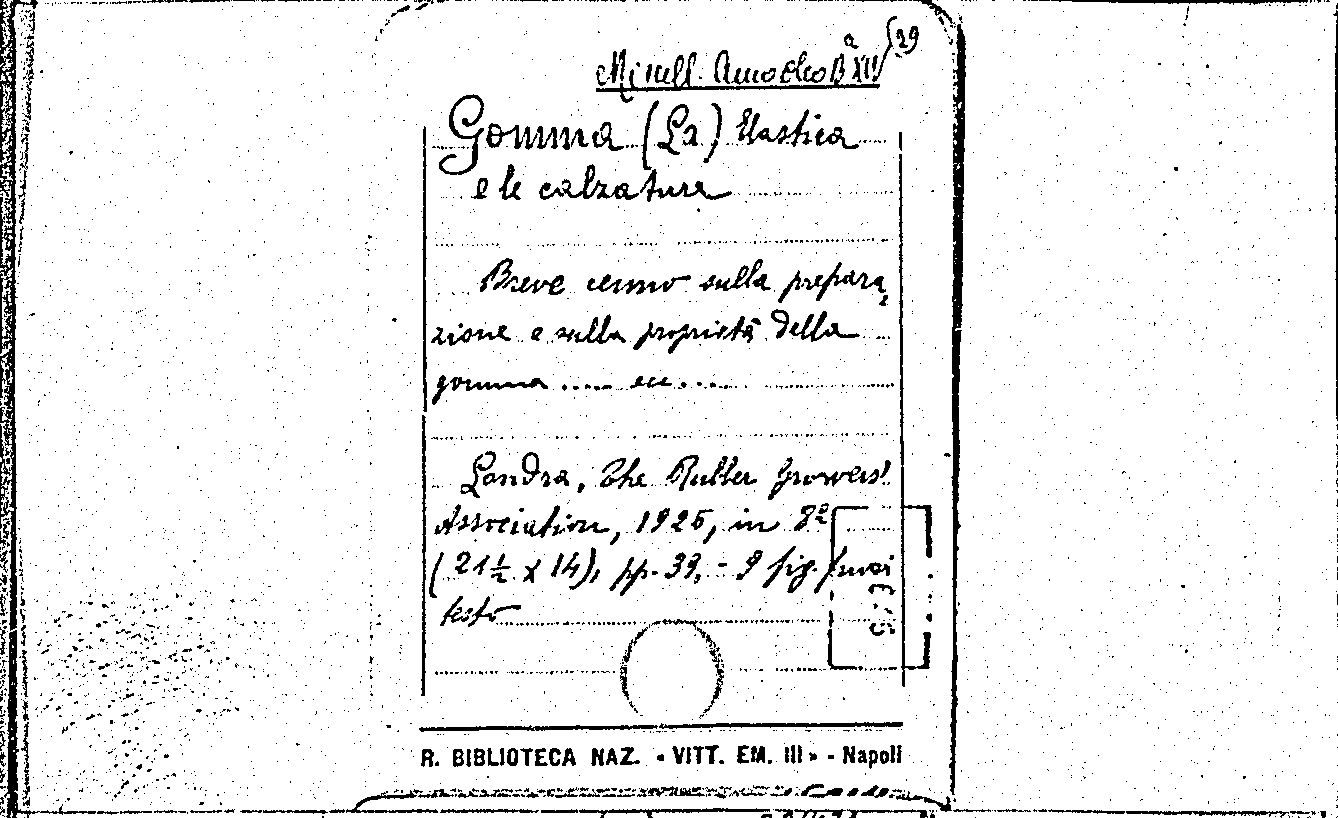 Miscell. Amodeo Bª XII/29
Gomma (La) Elastica
e le calzature
Breve cenno sulla prepara-
zione e sulla proprietà della
gomma ..... ecc ....
Londra, The Rubber Growers'
Association, 1925, in 8º
(21½ x 14), pp. 39, - 9 fig.
testo
R. BIBLIOTECA NAZ. « VITT. EM. III » - Napoli